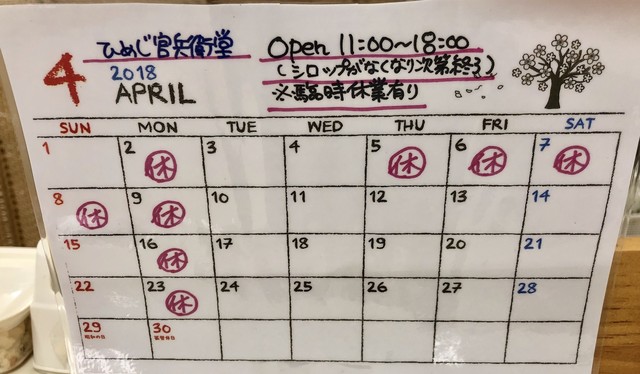 4
ひめじ官兵衛堂
2018
APRIL
Open 11:00〜18:00
(シロップがなくなり次第終了)
※臨時休業有り
SUN MON TUE WED THU FRI SAT
1 2 休 3 4 5 休 6 休 7 休
8 休 9 休 10 11 12 13 14
15 16 休 17 18 19 20 21
22 23 休 24 25 26 27 28
29 昭和の日 30 振替休日